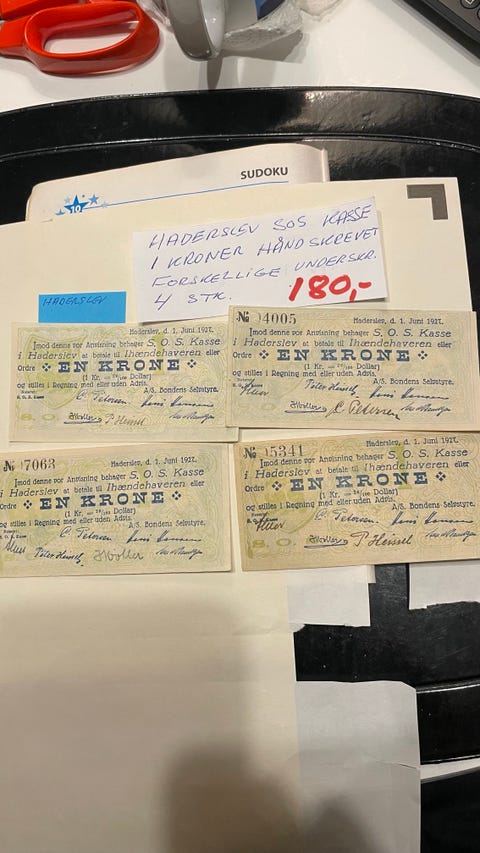 SUDOKU
10
HADERSLEV SOS KASSE
1 KRONER HÅNDSKREVET
FORSKELLIGE UNDERSKR.
4 STK. 180,-
HADERSLEV
Haderslev, d. 1. Juni 1927.
Imod denne vor Anvisning behager S. O. S. Kasse
i Haderslev at betale til Ihændehaveren eller
Ordre EN KRONE
(1 Kr. = Dollar)
og stilles i Regning med eller uden Advis.
A/S. Bondens Selvstyre.
C Petersen
P Heissel
№ 4005
Haderslev, d. 1. Juni 1927.
Imod denne vor Anvisning behager S. O. S. Kasse
i Haderslev at betale til Ihændehaveren eller
Ordre EN KRONE
(1 Kr. = Dollar)
og stilles i Regning med eller uden Advis.
A/S. Bondens Selvstyre.
C Petersen
№ 7063
Haderslev, d. 1. Juni 1927.
Imod denne vor Anvisning behager S. O. S. Kasse
i Haderslev at betale til Ihændehaveren eller
Ordre EN KRONE
(1 Kr. = Dollar)
og stilles i Regning med eller uden Advis.
A/S. Bondens Selvstyre.
C Petersen
№ 5341
Haderslev, d. 1. Juni 1927.
Imod denne vor Anvisning behager S. O. S. Kasse
i Haderslev at betale til Ihændehaveren eller
Ordre EN KRONE
(1 Kr. = Dollar)
og stilles i Regning med eller uden Advis.
A/S. Bondens Selvstyre.
C Petersen
S. O.
P Heissel